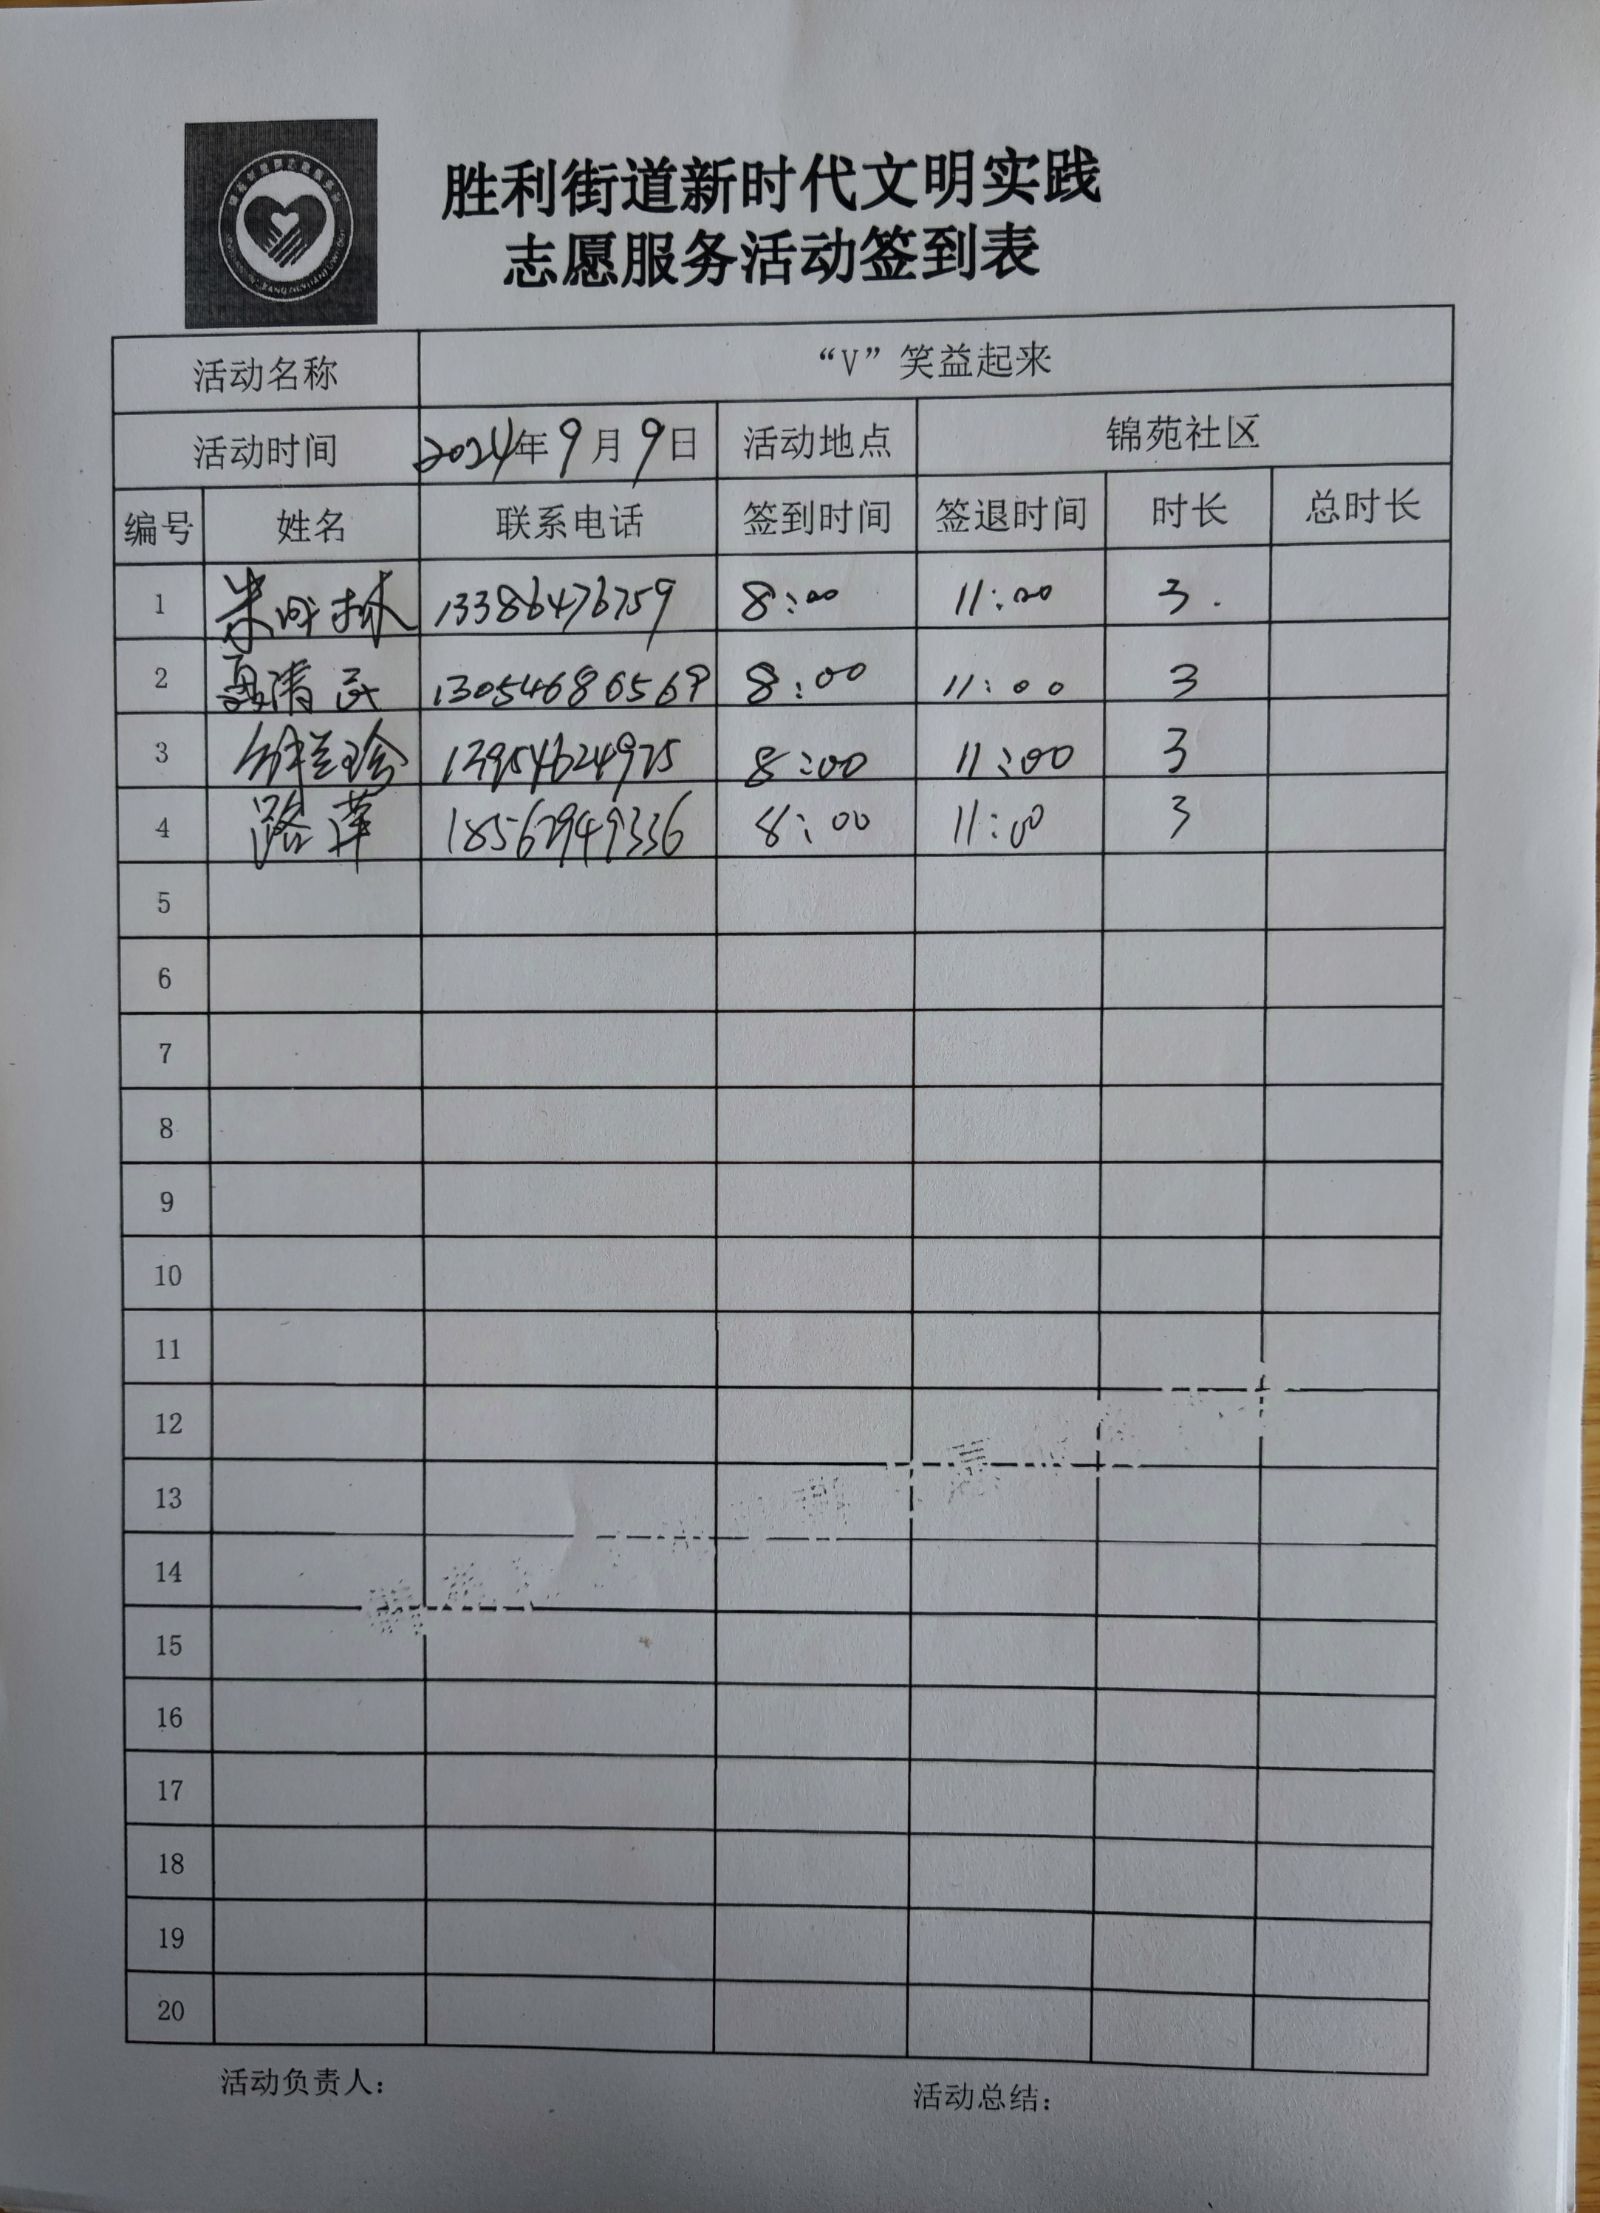 胜利街道新时代文明实践
志愿服务活动签到表
活动名称 “V”笑益起来
活动时间 2024年9月9日 活动地点 锦苑社区
编号 姓名 联系电话 签到时间 签退时间 时长 总时长
1 13386476759 8:00 11:00 3.
2 夏清民 13054686569 8:00 11:00 3
3 兰珍 13954624975 8:00 11:00 3
4 路萍 18562949336 8:00 11:00 3
5
6
7
8
9
10
11
12
13
14
15
16
17
18
19
20
活动负责人： 活动总结：